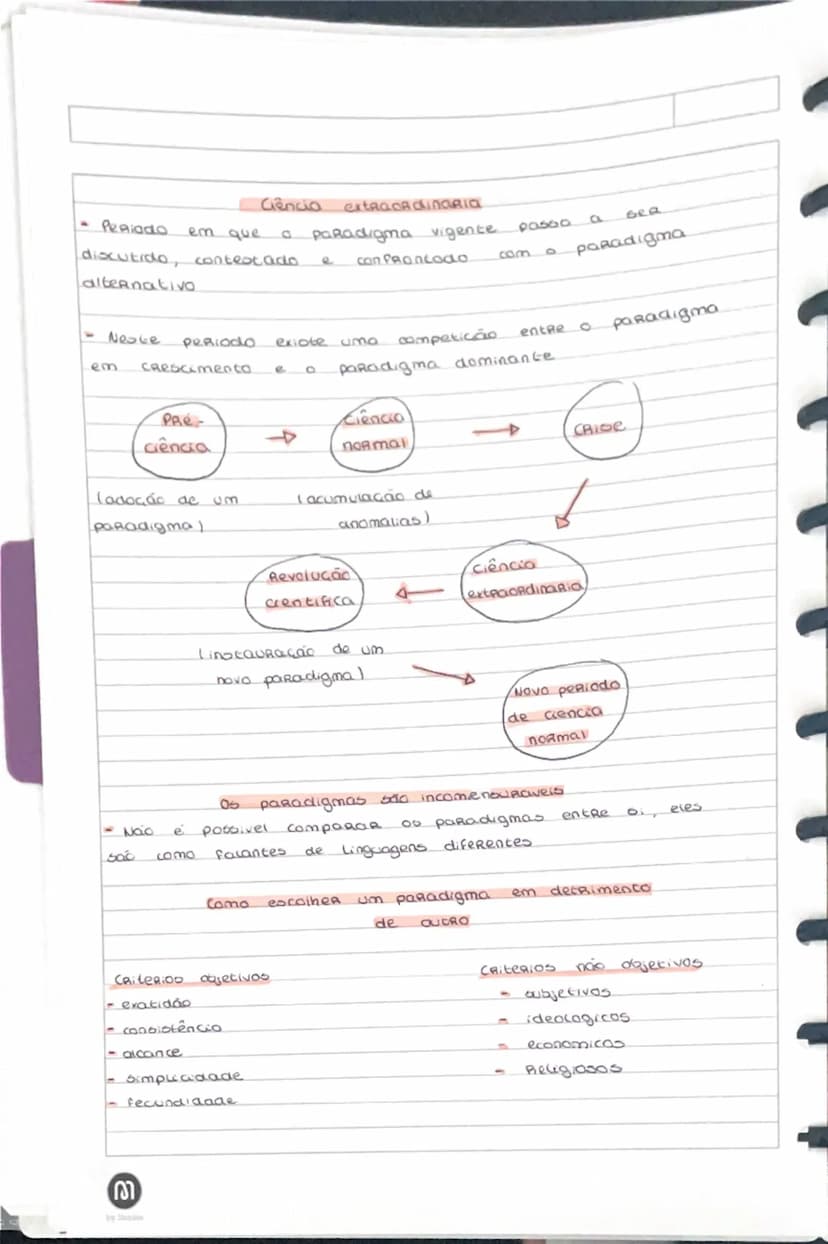 Ciência extraordinaria
- Periodo em que o paradigma vigente passa a ser
discutido, contestado e confrontado com o paradigma
alternativo
- Neste periodo existe uma competição entre o paradigma
em crescimento e o paradigma dominante
Pré-
ciência
ciência
normal
crise
(adoção de um
paradigma)
(acumulação de
anomalias)
Revolução
cientifica
ciência
extraordinaria
(instauração de um
novo paradigma)
novo periodo
de ciencia
normal
Os paradigmas são incomensuraveis
- Não é possivel comparar os paradigmas entre si, eles
são como falantes de linguagens diferentes
Como escolher um paradigma em detrimento
de outro
Criterios objetivos
- exatidão
- consistência
- alcance
- simplicidade
- fecundidade
Criterios não objetivos
- subjetivos
- ideologicos
- economicos
- Religiosos